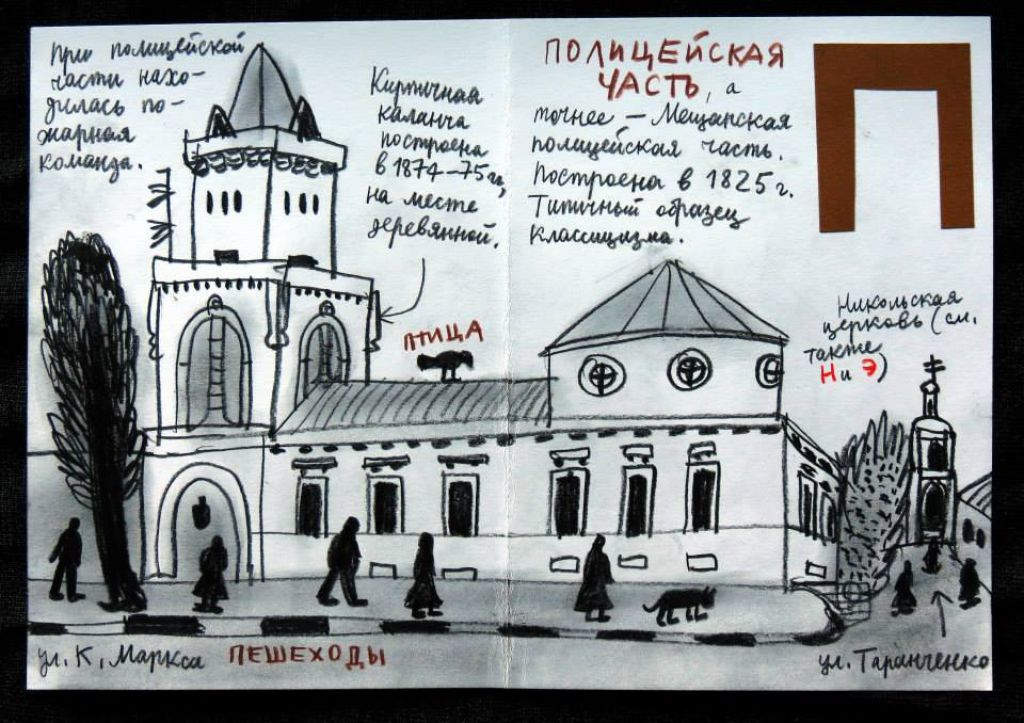 При полицейской
части нахо-
дилась по-
жарная
команда.
Кирпичная
каланча
построена
в 1874–75 гг,
на месте
деревянной.
ПОЛИЦЕЙСКАЯ
ЧАСТЬ, а
точнее – Мещанская
полицейская часть.
Построена в 1825 г.
Типичный образец
классицизма.
П
ПТИЦА
Никольская
церковь (см.
также
Н и Э)
ул. К. Маркса
ПЕШЕХОДЫ
ул. Таранченко